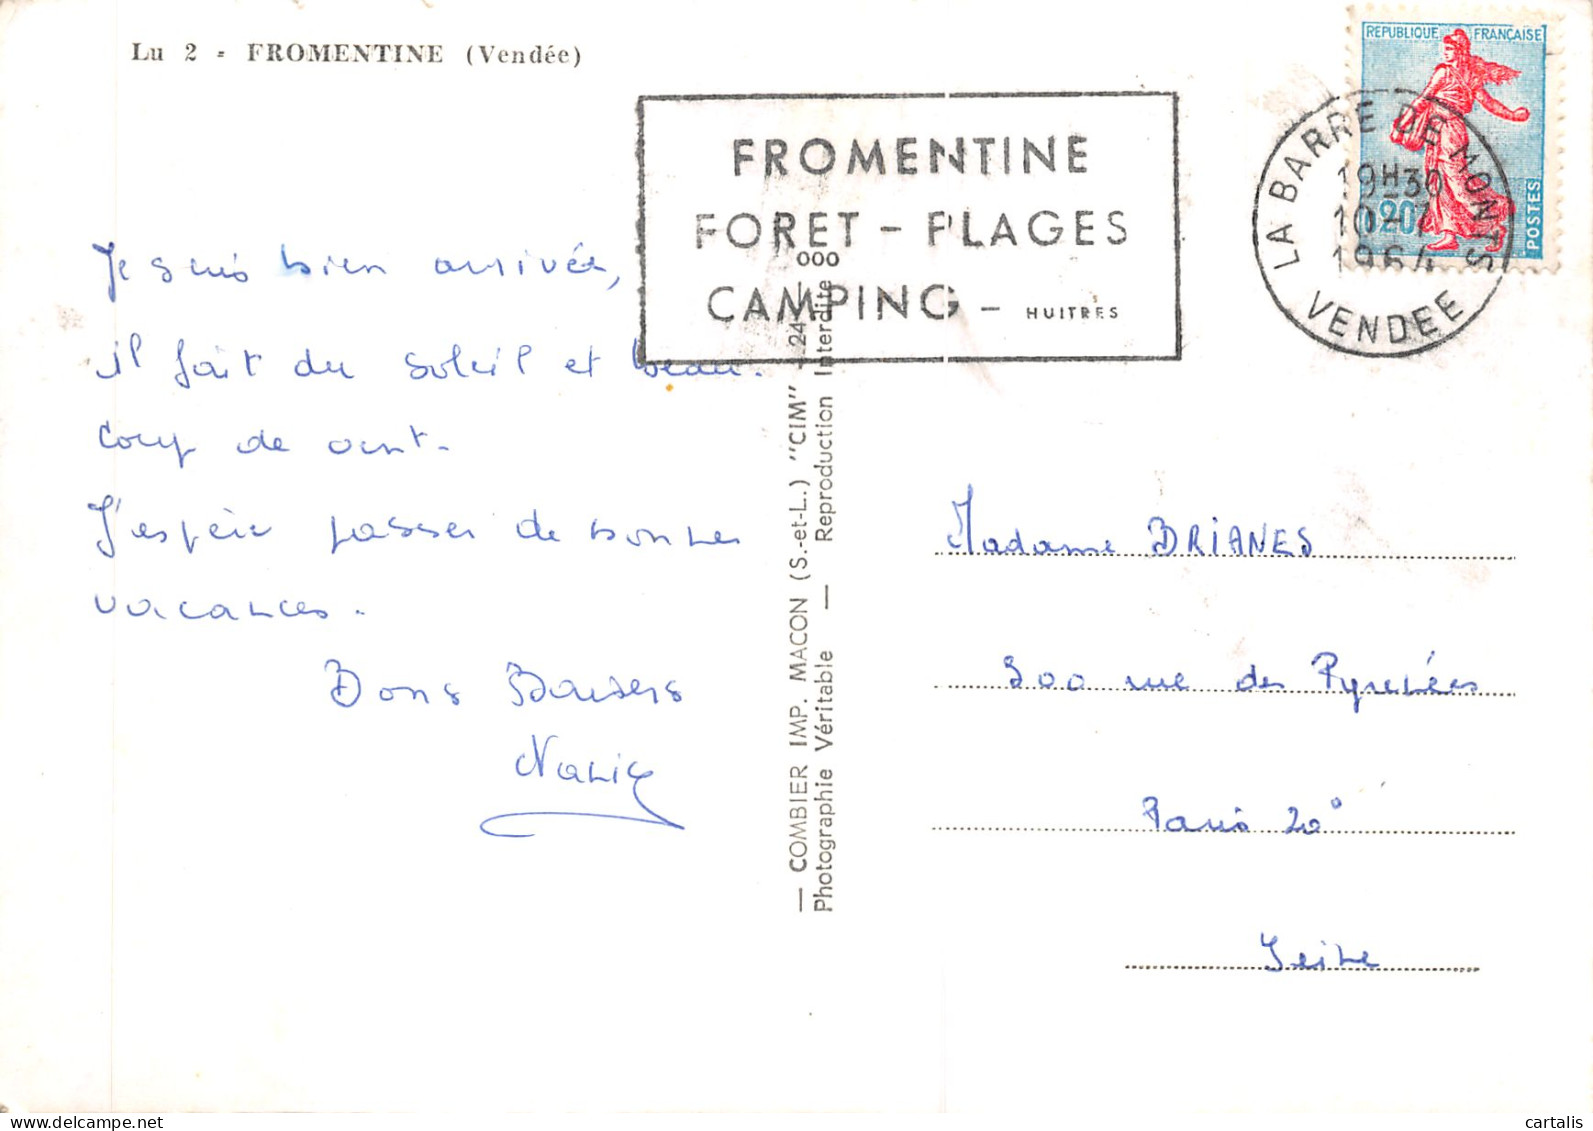 Lu 2 - FROMENTINE (Vendée)
REPUBLIQUE FRANÇAISE
0,20
POSTES
FROMENTINE
FORET - PLAGES
CAMPING - HUITRES
LA BARRE DE MONTS
19H30
10-7
1964
VENDEE
Je suis bien arrivée,
il fait du soleil et beau-
coup de vent.
J'espère passer de bonnes
vacances.
Bons Baisers
— COMBIER IMP. MACON (S.-et-L.) "CIM" — 24
Photographie Véritable — Reproduction Interdite
ooo
Madame BRIANES
300 rue des Pyrenées
Paris 20°
Seine
cartalis
www.delcampe.net